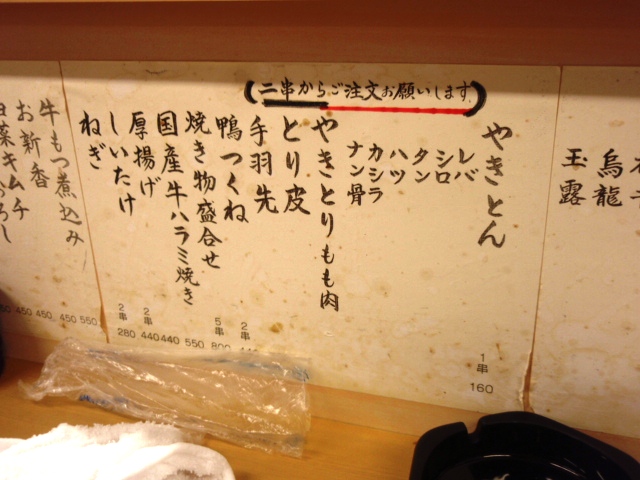 烏龍
玉露
(二串からご注文お願いします)
やきとん
1串
160
レバ
シロ
タン
ハツ
カシラ
ナン骨
やきとりもも肉
とり皮
手羽先
鴨つくね
焼き物盛合せ
国産牛ハラミ焼き
厚揚げ
しいたけ
ねぎ
2串
5串
800
550
440
2串
440
2串
280
牛もつ煮込み
お新香
白菜キムチ
550
450
450
450